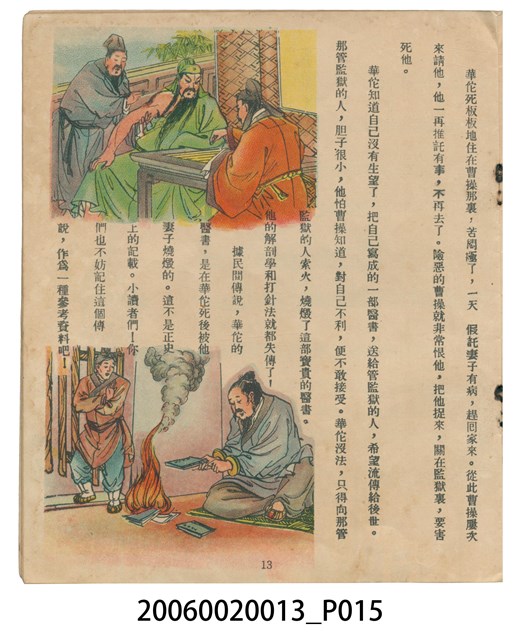 華佗死板板地住在曹操那裏，苦悶極了，一天　假託妻子有病，趕回家來。從此曹操屢次
來請他，他一再推託有事，不再去了。險惡的曹操就非常恨他，把他捉來，關在監獄裏，要害
死他。
華佗知道自己沒有生望了，把自己寫成的一部醫書，送給管監獄的人，希望流傳給後世。
那管監獄的人，胆子很小，他怕曹操知道，對自己不利，便不敢接受。華佗沒法，只得向那管
監獄的人索火，燒燬了這部寶貴的醫書。
他的解剖學和打針法就都失傳了！
據民間傳說，華佗的
醫書，是在華佗死後被他
妻子燒燬的。這不是正史
上的記載。小讀者們！你
們也不妨記住這個傳
說，作為一種參考資料吧！
13
20060020013_P015